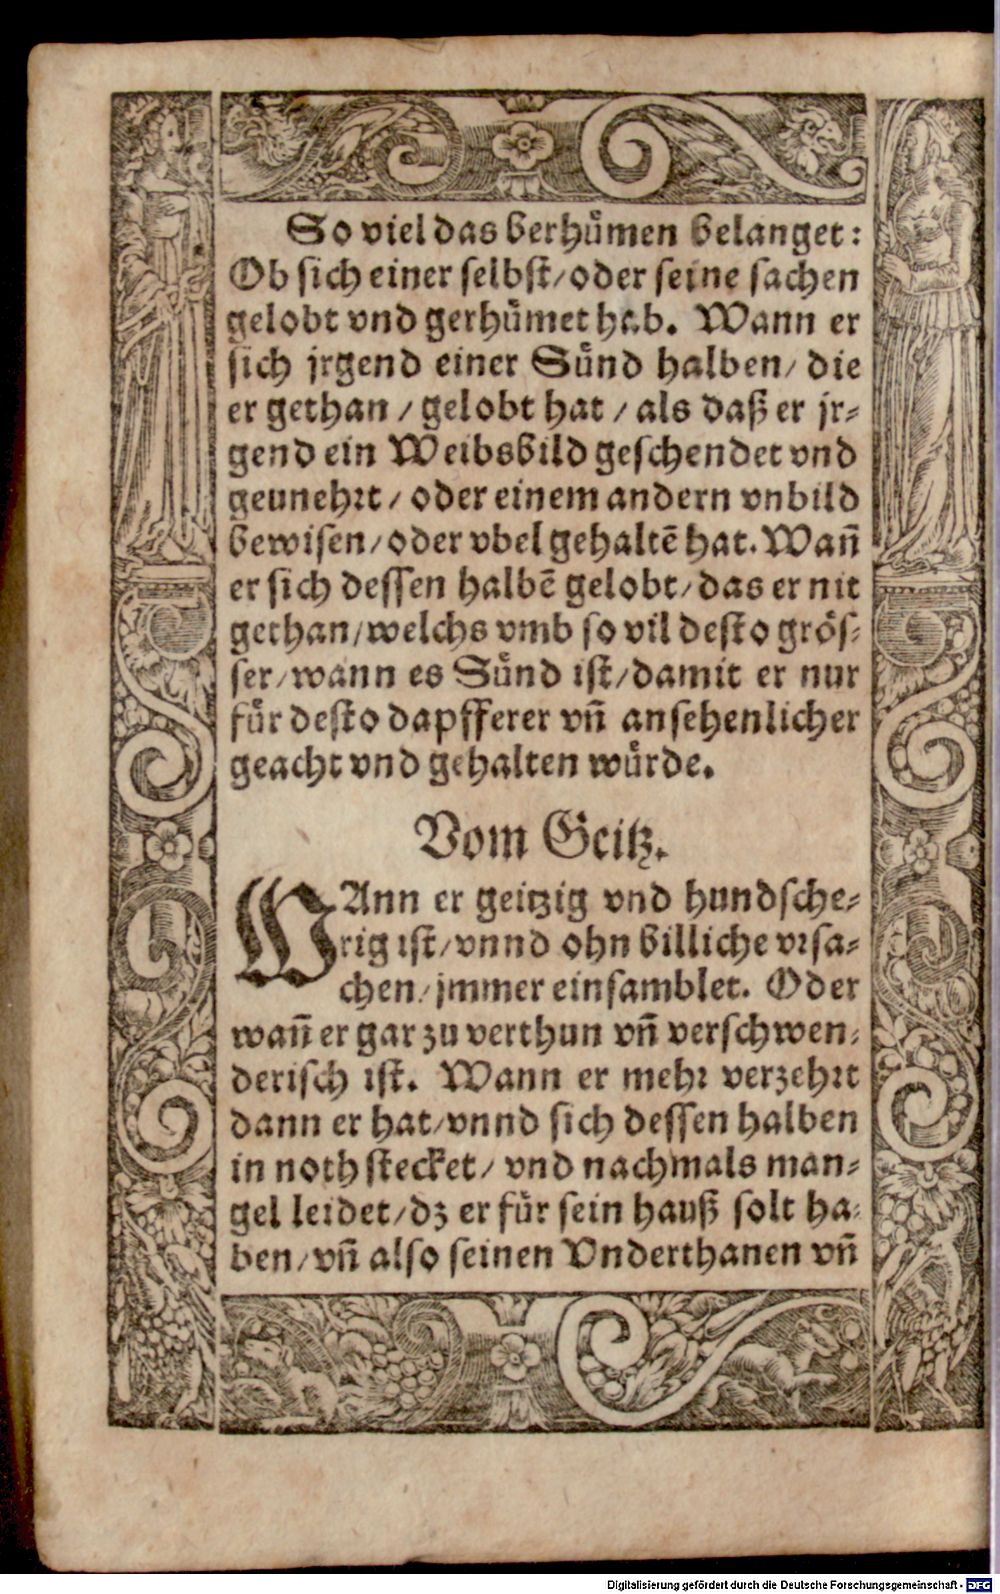 So viel das berhuͤmen belanget:
Ob sich einer selbst/ oder seine sachen
gelobt vnd gerhuͤmet hab. Wann er
sich jrgend einer Suͤnd halben/ die
er gethan / gelobt hat / als daß er jr-
gend ein Weibsbild geschendet vnd
geunehrt/ oder einem andern vnbild
bewisen/ oder vbel gehaltē hat. Wañ
er sich dessen halbē gelobt/ das er nit
gethan/ welchs vmb so vil desto groͤs-
ser/ wann es Suͤnd ist/ damit er nur
fuͤr desto dapfferer vñ ansehenlicher
geacht vnd gehalten wuͤrde.
Vom Geitz.
WAnn er geitzig vnd hundsche-
rig ist/ vnnd ohn billiche vrsa-
chen/ jmmer einsamblet. Oder
wañ er gar zu verthun vñ verschwen-
derisch ist. Wann er mehr verzehrt
dann er hat/ vnnd sich dessen halben
in noth stecket/ vnd nachmals man-
gel leidet/ dz er fuͤr sein hauß solt ha-
ben/ vñ also seinen Vnderthanen vñ
Digitalisierung gefördert durch die Deutsche Forschungsgemeinschaft - DFG